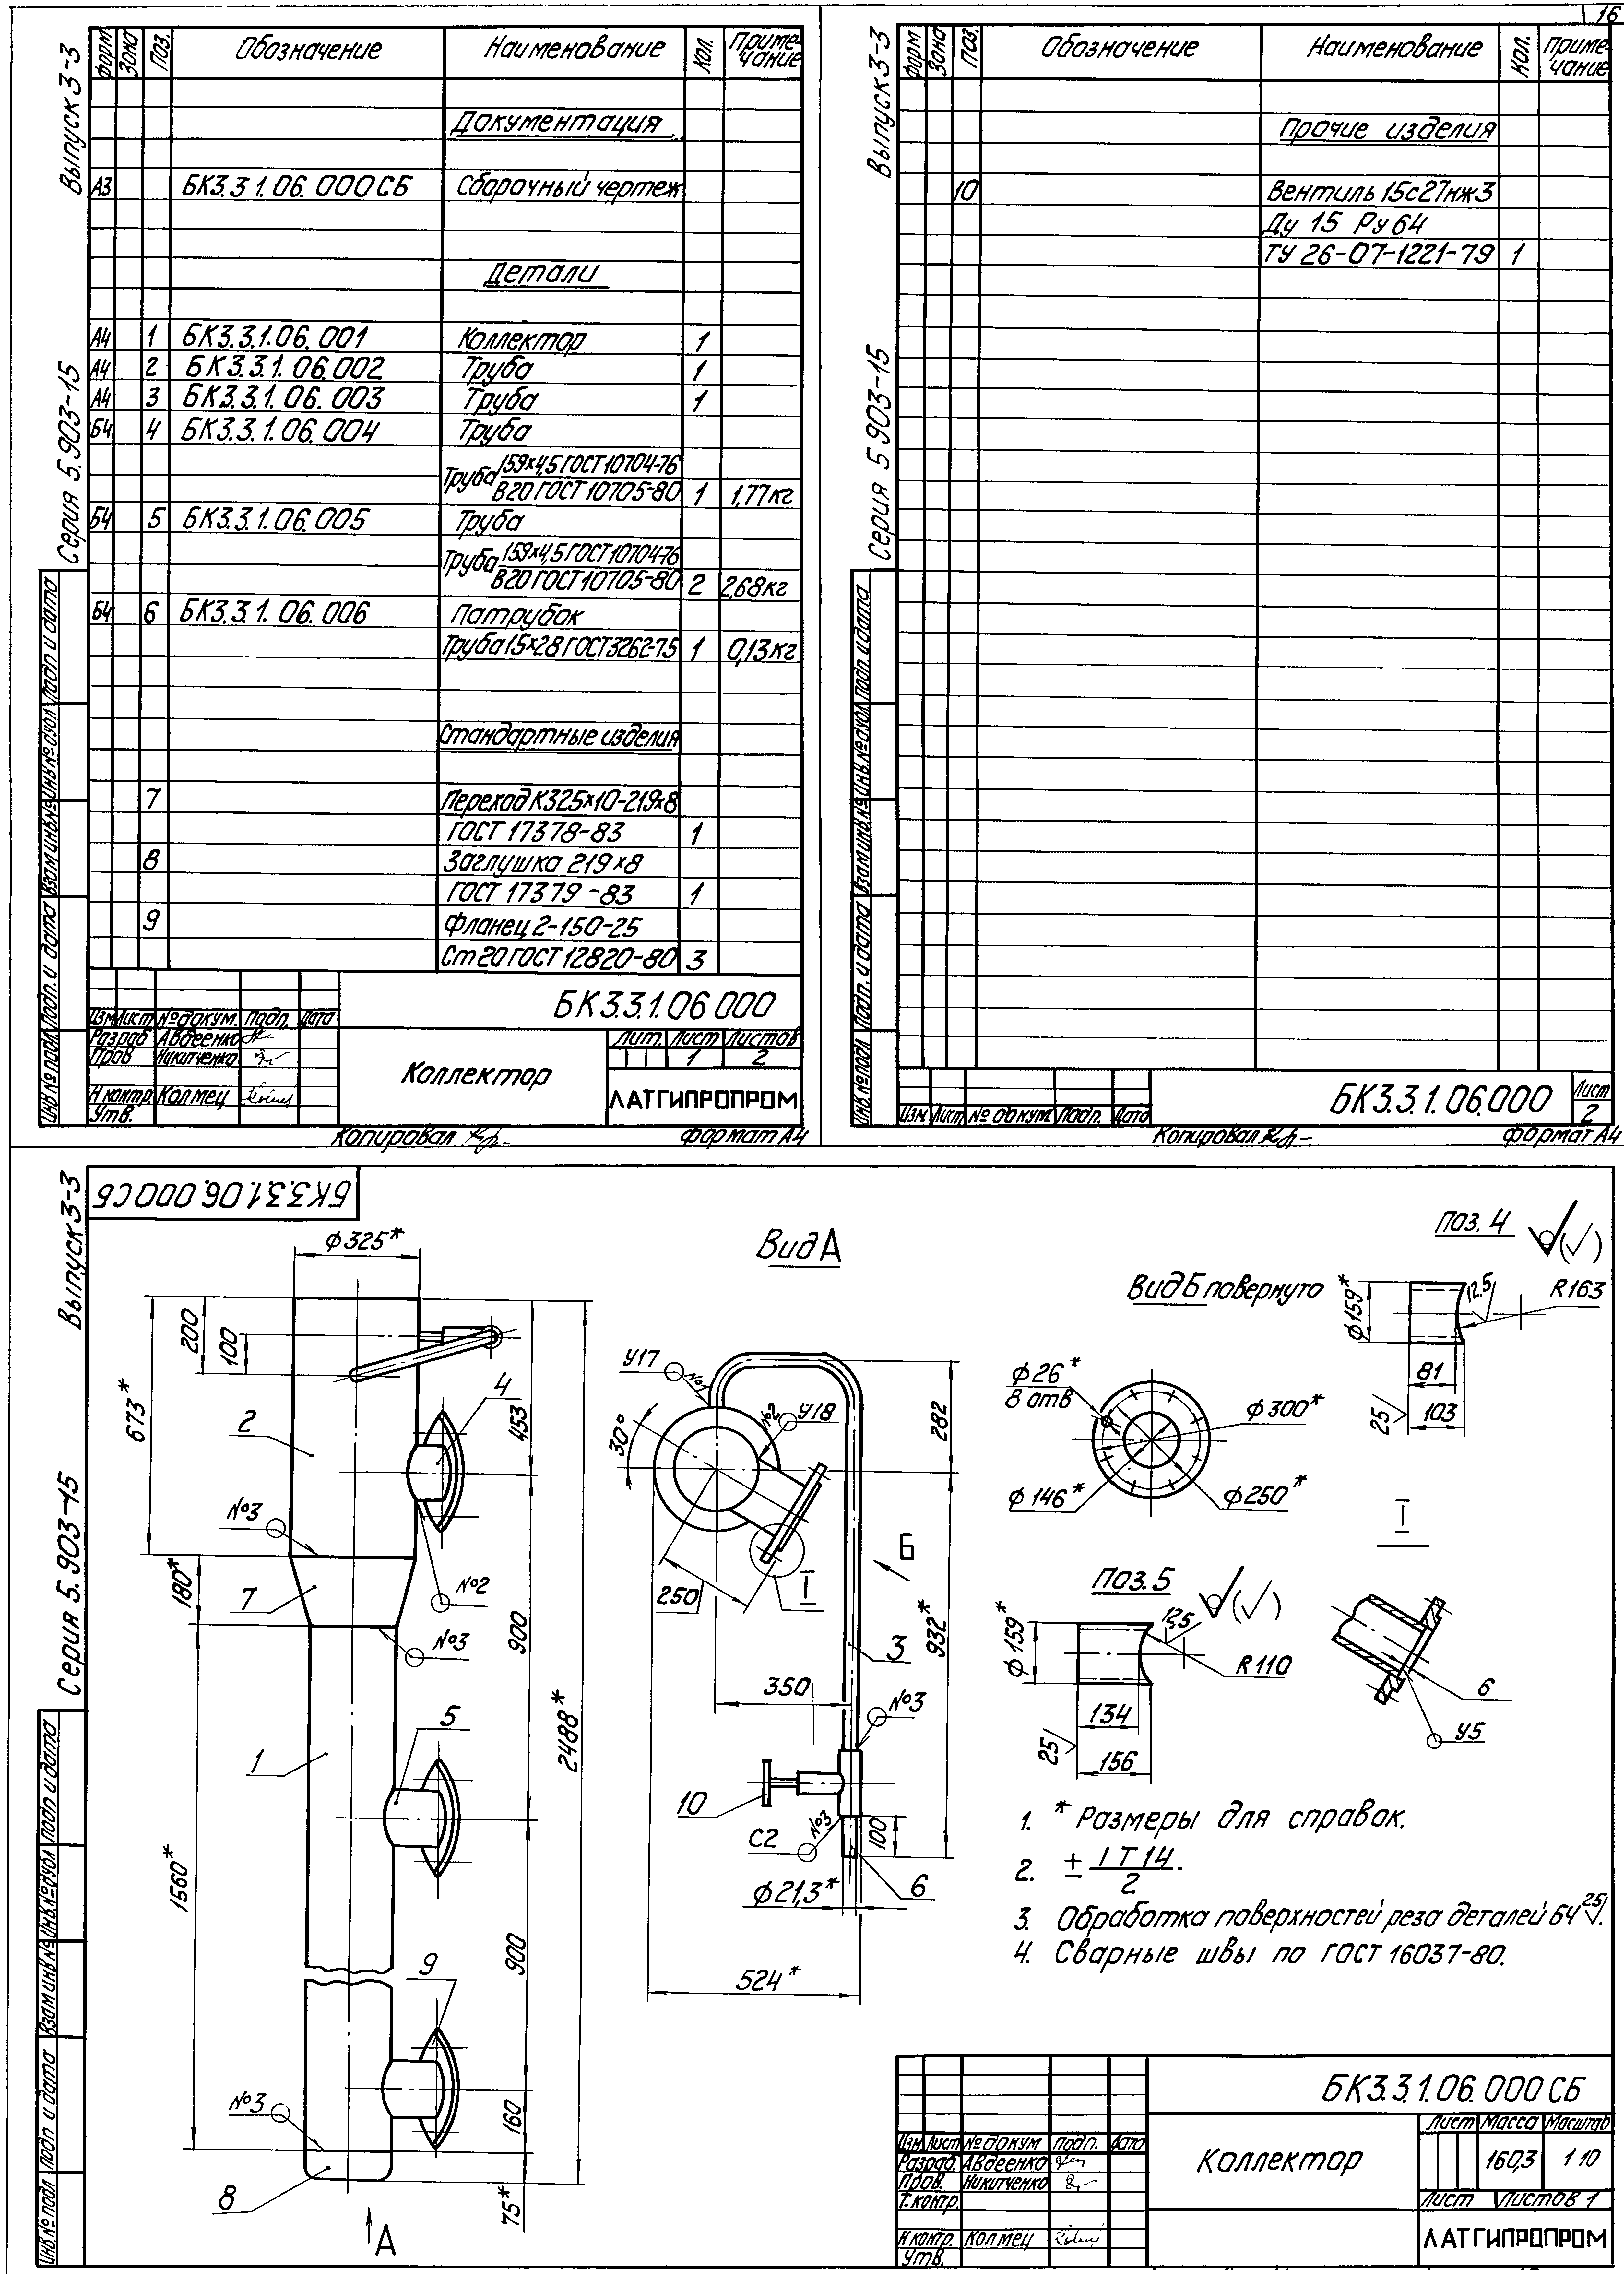 16
Выпуск 3-3
Серия 5.903-15
Форм Зона Поз. Обозначение Наименование Кол. Приме-чание
Документация
А3 БК3.3.1.06.000СБ Сборочный чертеж
Детали
А4 1 БК3.3.1.06.001 Коллектор 1
А4 2 БК3.3.1.06.002 Труба 1
А4 3 БК3.3.1.06.003 Труба 1
Б4 4 БК3.3.1.06.004 Труба
Труба 159×4,5 ГОСТ 10704-76
В20 ГОСТ 10705-80 1 1,77кг
Б4 5 БК3.3.1.06.005 Труба
Труба 159×4,5 ГОСТ 10704-76
В20 ГОСТ 10705-80 2 2,68кг
Б4 6 БК3.3.1.06.006 Патрубок
Труба 15×2,8 ГОСТ 3262-75 1 0,13кг
Стандартные изделия
7 Переход К325×10-219×8
ГОСТ 17378-83 1
8 Заглушка 219×8
ГОСТ 17379-83 1
9 Фланец 2-150-25
Ст20 ГОСТ 12820-80 3
БК3.3.1.06.000
Изм Лист № докум. Подп. Дата
Разраб Авдеенко
Пров Никитченко
Н контр. Колмец
Утв.
Коллектор
Лит. Лист Листов
1 2
ЛАТГИПРОПРОМ
Инв.№ подл Подп. и дата Взам инв.№ Инв.№ дубл Подп и дата
Копировал Формат А4
Выпуск 3-3
Серия 5.903-15
Форм Зона Поз. Обозначение Наименование Кол. Приме-чание
Прочие изделия
10 Вентиль 15с27нж3
Ду 15 Ру 64
ТУ 26-07-1221-79 1
Инв.№ подл Подп. и дата Взам инв.№ Инв.№ дубл Подп. и дата
Изм Лист № докум. Подп. Дата
БК3.3.1.06.000
Лист
2
Копировал Формат А4
Выпуск 3-3
Серия 5.903-15
БК3.3.1.06.000СБ
ф325*
200
100
673*
453
4
2
№3
№2
180*
7
№3
900
2488*
5
1
1560*
900
9
№3
160
8
75*
А
Вид А
У17
№1
№2
У18
30°
282
250
I
Б
3
932*
350
№3
10
С2
№3
100
ф21,3*
6
524*
Вид Б повернуто
ф26*
8 отв
ф300*
ф146*
ф250*
Поз. 4
ф159*
12,5
R163
81
25
103
I
Поз. 5
ф159*
12,5
R110
134
25
156
6
У5
1. * Размеры для справок.
2. ± IT14/2.
3. Обработка поверхностей реза деталей Б4 25.
4. Сварные швы по ГОСТ 16037-80.
БК3.3.1.06.000СБ
Изм Лист № докум Подп. Дата
Разраб. Авдеенко
Пров. Никитченко
Т.контр.
Н контр. Колмец
Утв.
Коллектор
Лист Масса Масштаб
160,3 1 10
Лист Листов 1
ЛАТГИПРОПРОМ
Инв.№ подл Подп и дата Взам инв.№ Инв.№ дубл Подп и дата